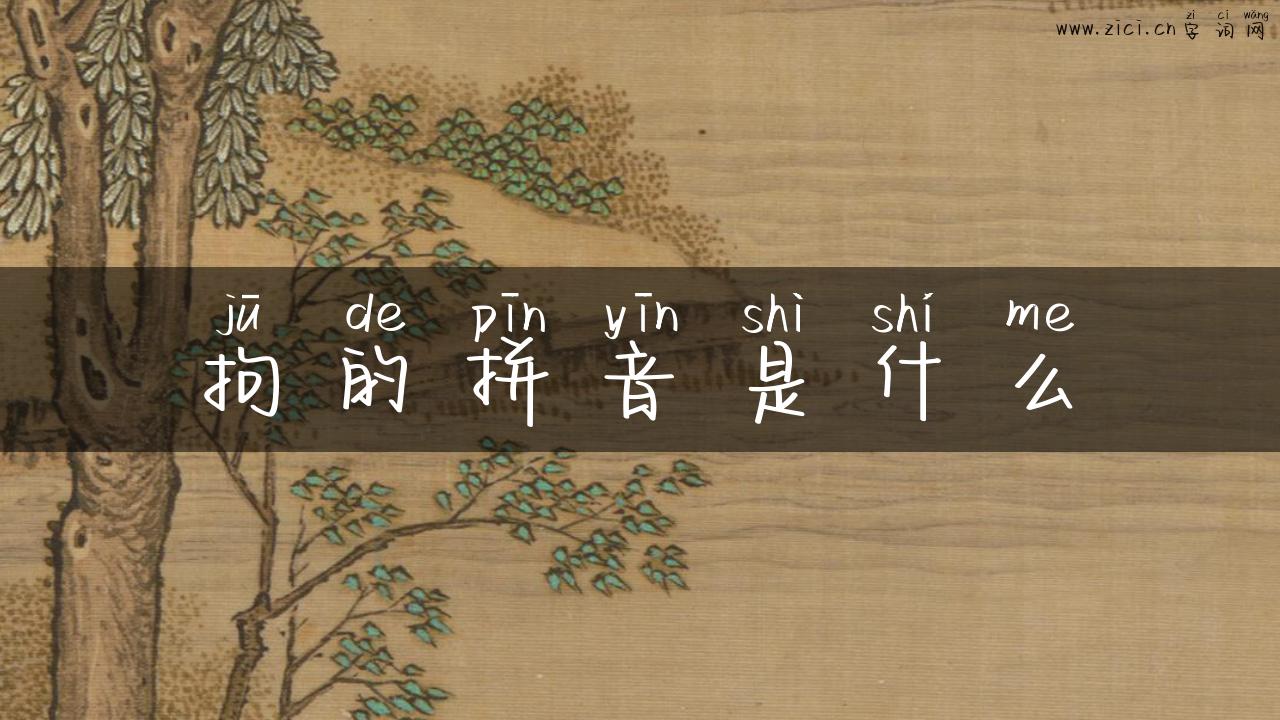 zì cí wǎng
www.zici.cn 字词网
jū de pīn yīn shì shí me
拘的拼音是什么